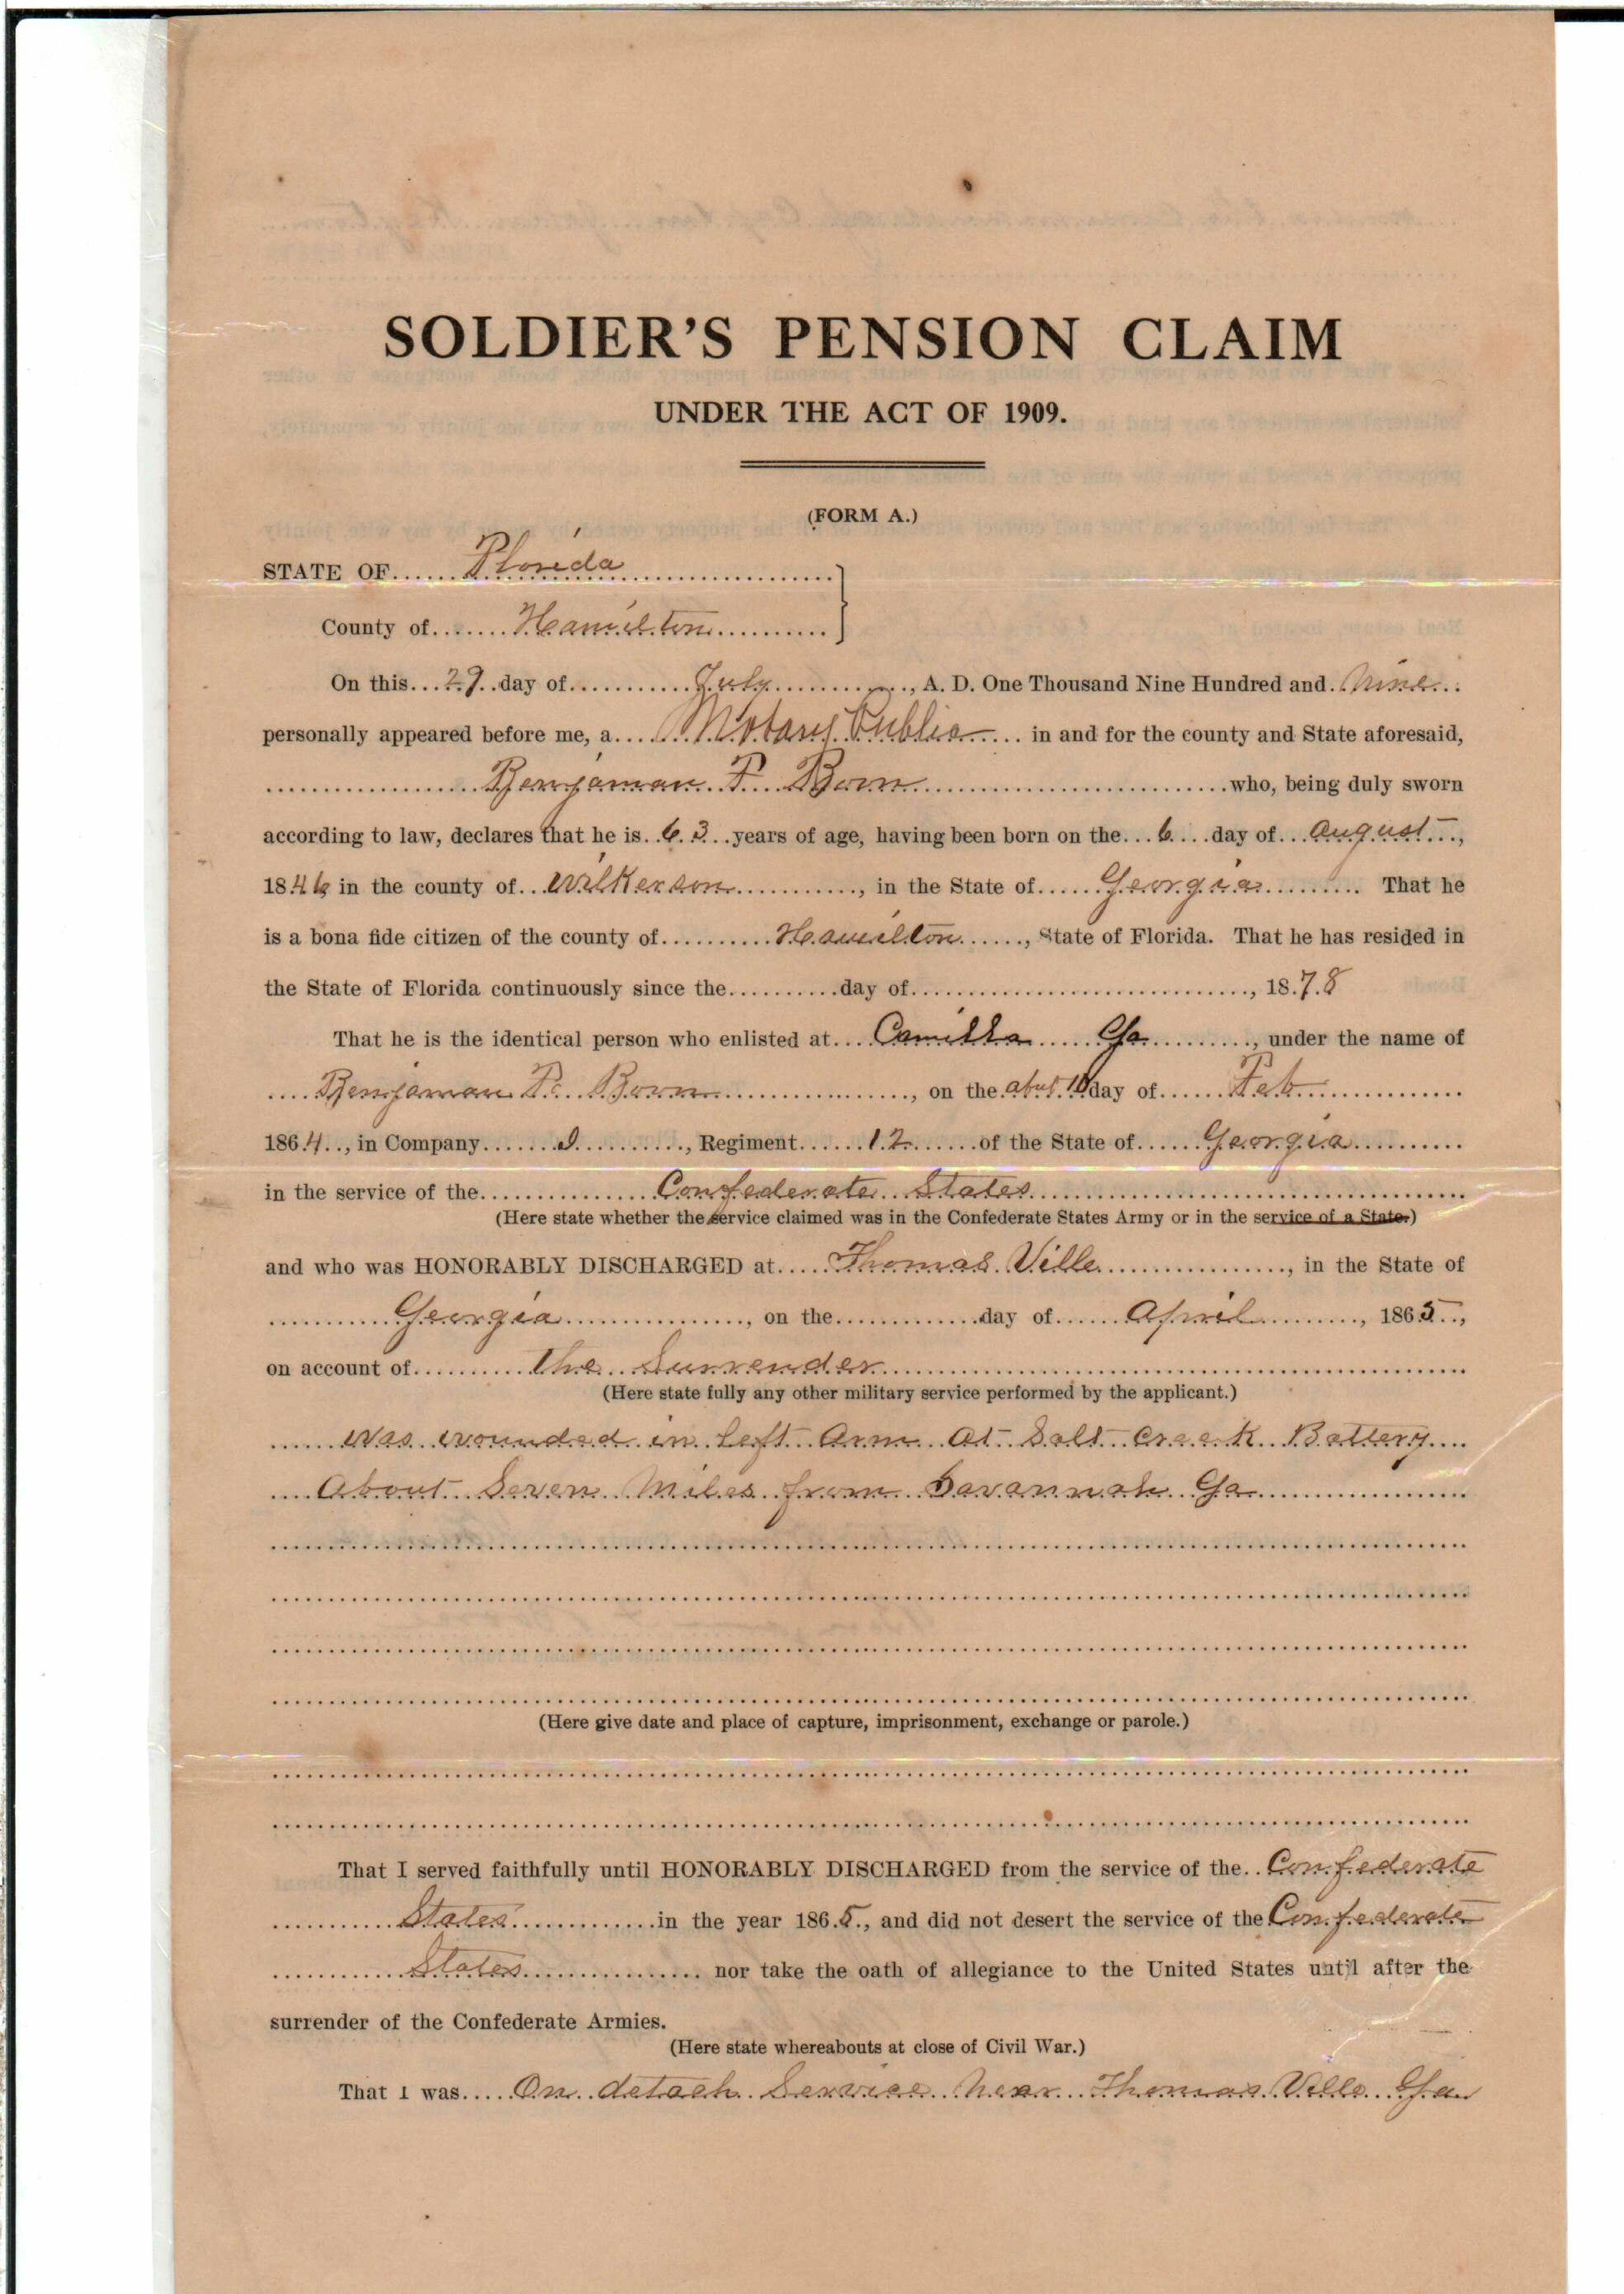 SOLDIER'S PENSION CLAIM
UNDER THE ACT OF 1909.
(FORM A.)
STATE OF Florida
County of Hamilton
On this 29 day of July, A. D. One Thousand Nine Hundred and Nine
personally appeared before me, a Notary Public in and for the county and State aforesaid,
Benjaman F. Born who, being duly sworn
according to law, declares that he is 63 years of age, having been born on the 6 day of August,
1846 in the county of Wilkerson, in the State of Georgia That he
is a bona fide citizen of the county of Hamilton, State of Florida. That he has resided in
the State of Florida continuously since the day of, 1878
That he is the identical person who enlisted at Camilla Ga, under the name of
Benjaman F. Born, on the about 10 day of Feb
1864, in Company I, Regiment 12 of the State of Georgia
in the service of the Confederate States
(Here state whether the service claimed was in the Confederate States Army or in the service of a State.)
and who was HONORABLY DISCHARGED at Thomas Ville, in the State of
Georgia, on the day of April, 1865,
on account of the Surrender
(Here state fully any other military service performed by the applicant.)
Was wounded in left Arm At Salt Creek Battery
About Seven Miles from Savannah Ga
(Here give date and place of capture, imprisonment, exchange or parole.)
That I served faithfully until HONORABLY DISCHARGED from the service of the Confederate
States in the year 1865, and did not desert the service of the Confederate
States nor take the oath of allegiance to the United States until after the
surrender of the Confederate Armies.
(Here state whereabouts at close of Civil War.)
That I was On detach Service Near Thomas Ville Ga